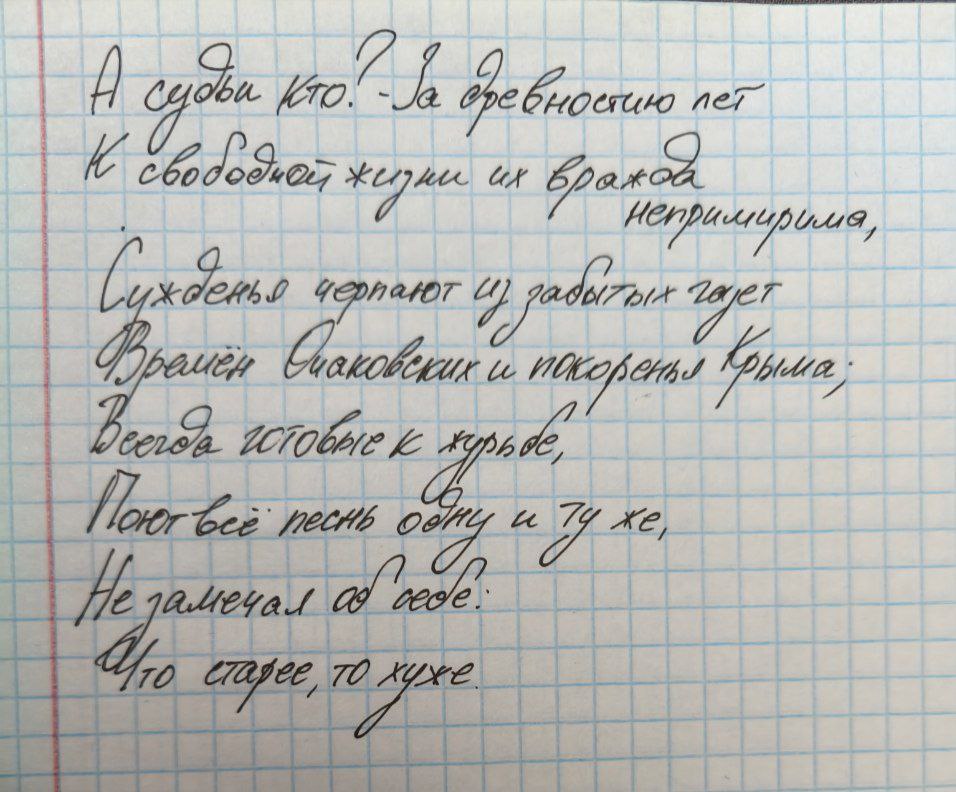 А судьи кто? - За древностию лет
К свободной жизни их вражда
непримирима,
Сужденья черпают из забытых газет
Времён Очаковских и покоренья Крыма;
Всегда готовые к журьбе,
Поют всё песнь одну и ту же,
Не замечая об себе:
Что старее, то хуже.